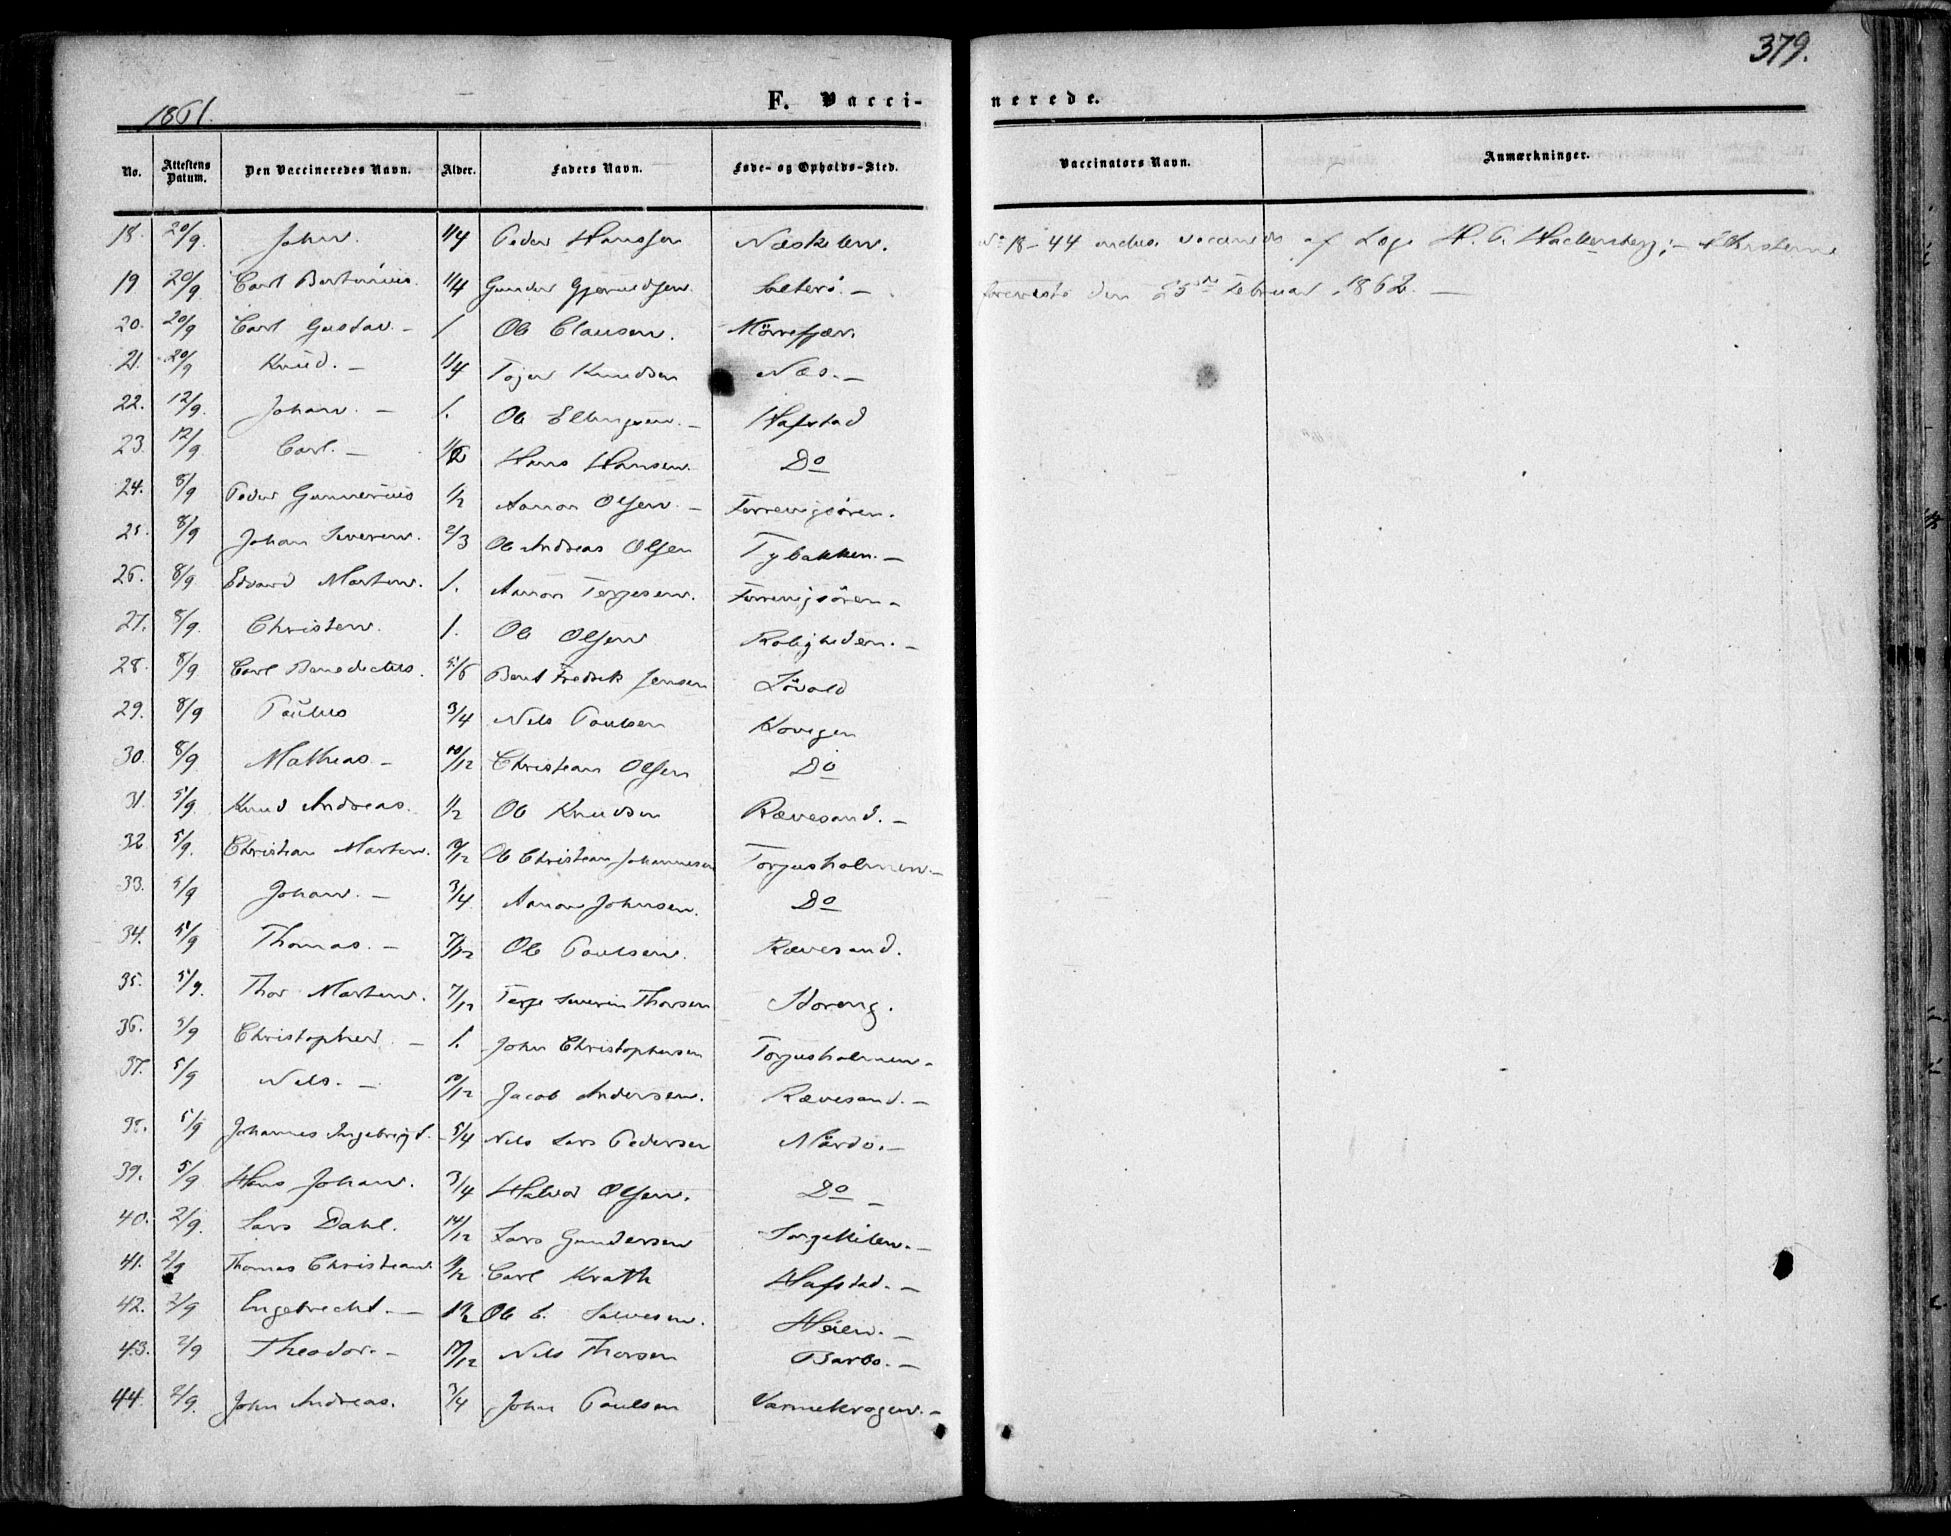 379.
1861.
F. Vaccinerede.
No. Attestens Datum. Den Vaccineredes Navn. Alder. Faders Navn. Føde- og Opholds-Sted. Vaccinators Navn. Anmærkninger.
18. 20/9. Johan. 1/4 Peder Hanssen Næskilen. No 18-44 inclus. vaccineds af Læge H. C. Wackersberg; – Attesterne
19 20/9 Carl Bertinius. 1/4 Gunder Gjeruldsen Salterø. – foreviste den 25de Februar 1862. –
20. 20/9 Carl Gustav. – 1. Ole Clausen. Mörrefjær.
21. 20/9 Knud. – 1/4 Tojer Knudsen Næs. –
22. 12/9. Johan. – 1. Ole Ellingsen. – Hafstad
23. 12/9 Carl. – 1/2 Hans Hansen. Do
24. 8/9 Peder Gunnerius 1/2 Aanon Olsen. – Torrevigsören.
25. 8/9 Johan Severin. 2/3 Ole Andreas Olsen Tybakken. –
26. 8/9. Edvard Martin. 1. Aanon Terjesen. Torrevigsören –
27. 8/9. Christen. 1. Ole Olsen Roligheden. –
28. 8/9. Carl Benedictus. 5/6 Bent Fredrik Jensen Lövold
29. 8/9 Paulus 3/4 Nils Paulsen Kovigen
30. 8/9 Mathias – 10/12 Christian Olsen Do
31. 5/9. Knud Andreas. 1/2 Ole Knudsen Rævesand. –
32 5/9. Christian Martin. 9/12 Ole Christian Johannesen Torjusholmen. –
33. 5/9 Johan. – 3/4 Aanon Johnsen. Do
34. 5/9 Thomas. – 7/12 Ole Paulsen. Rævesand.
35. 5/9. Thor Martin. 7/12 Terje Severin Thorsen Storeng.
36. 5/9 Christopher. – 1. John Christophersen Torjusholmen –
37. 5/9 Nils. – 10/12 Jacob Andersen. Rævesand. –
38. 5/9 Johannes Ingebrigt. – 5/4 Nils Lars Pedersen Mærdö. –
39. 5/9 Hans Johan. 3/4 Halvor Olsen. Do –
40. 2/9. Lars Dahl. 14/12 Lars Gundersen Songekilen. –
41. 2/9 Thomas Christian. 1/2 Carl Krath Hafstad. –
42. 2/9 Engebrecht. – 1 1/2 Ole C. Salvesen. Heien. –
43. 2/9 Theodor. – 10/12 Nils Thorsen Barbo. –
44. 2/9. John Andreas. 3/4 John Paulsen Varmekrogen. –